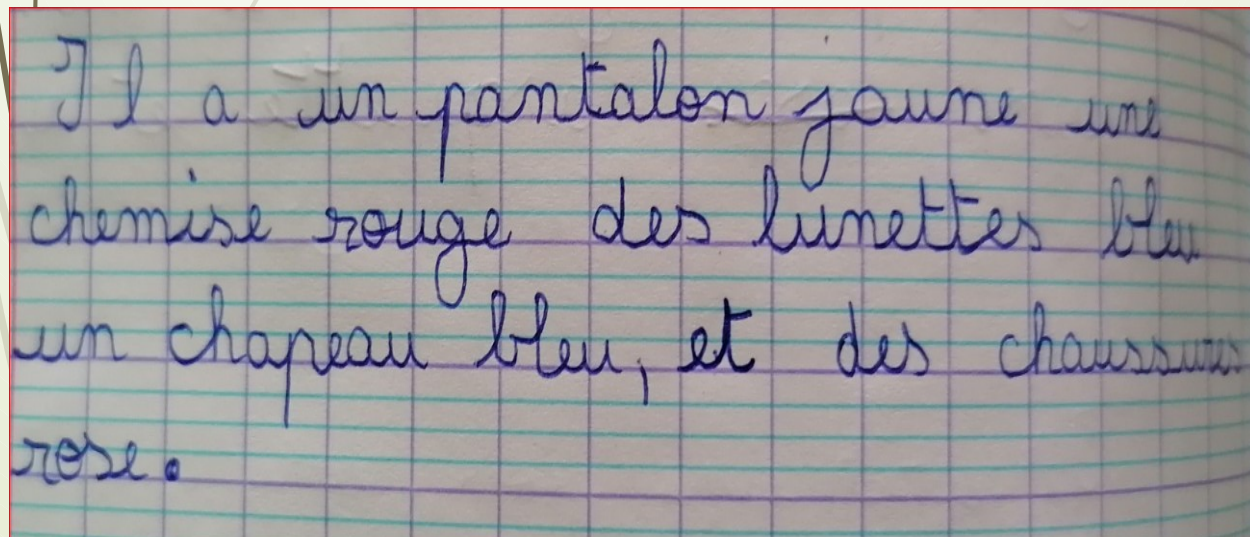 Il a un pantalon jaune une
chemise rouge des lunettes bleu
un chapeau bleu, et des chaussures
rose.